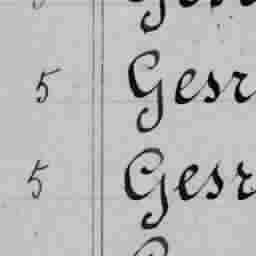 5 Gesr
5 Gesr